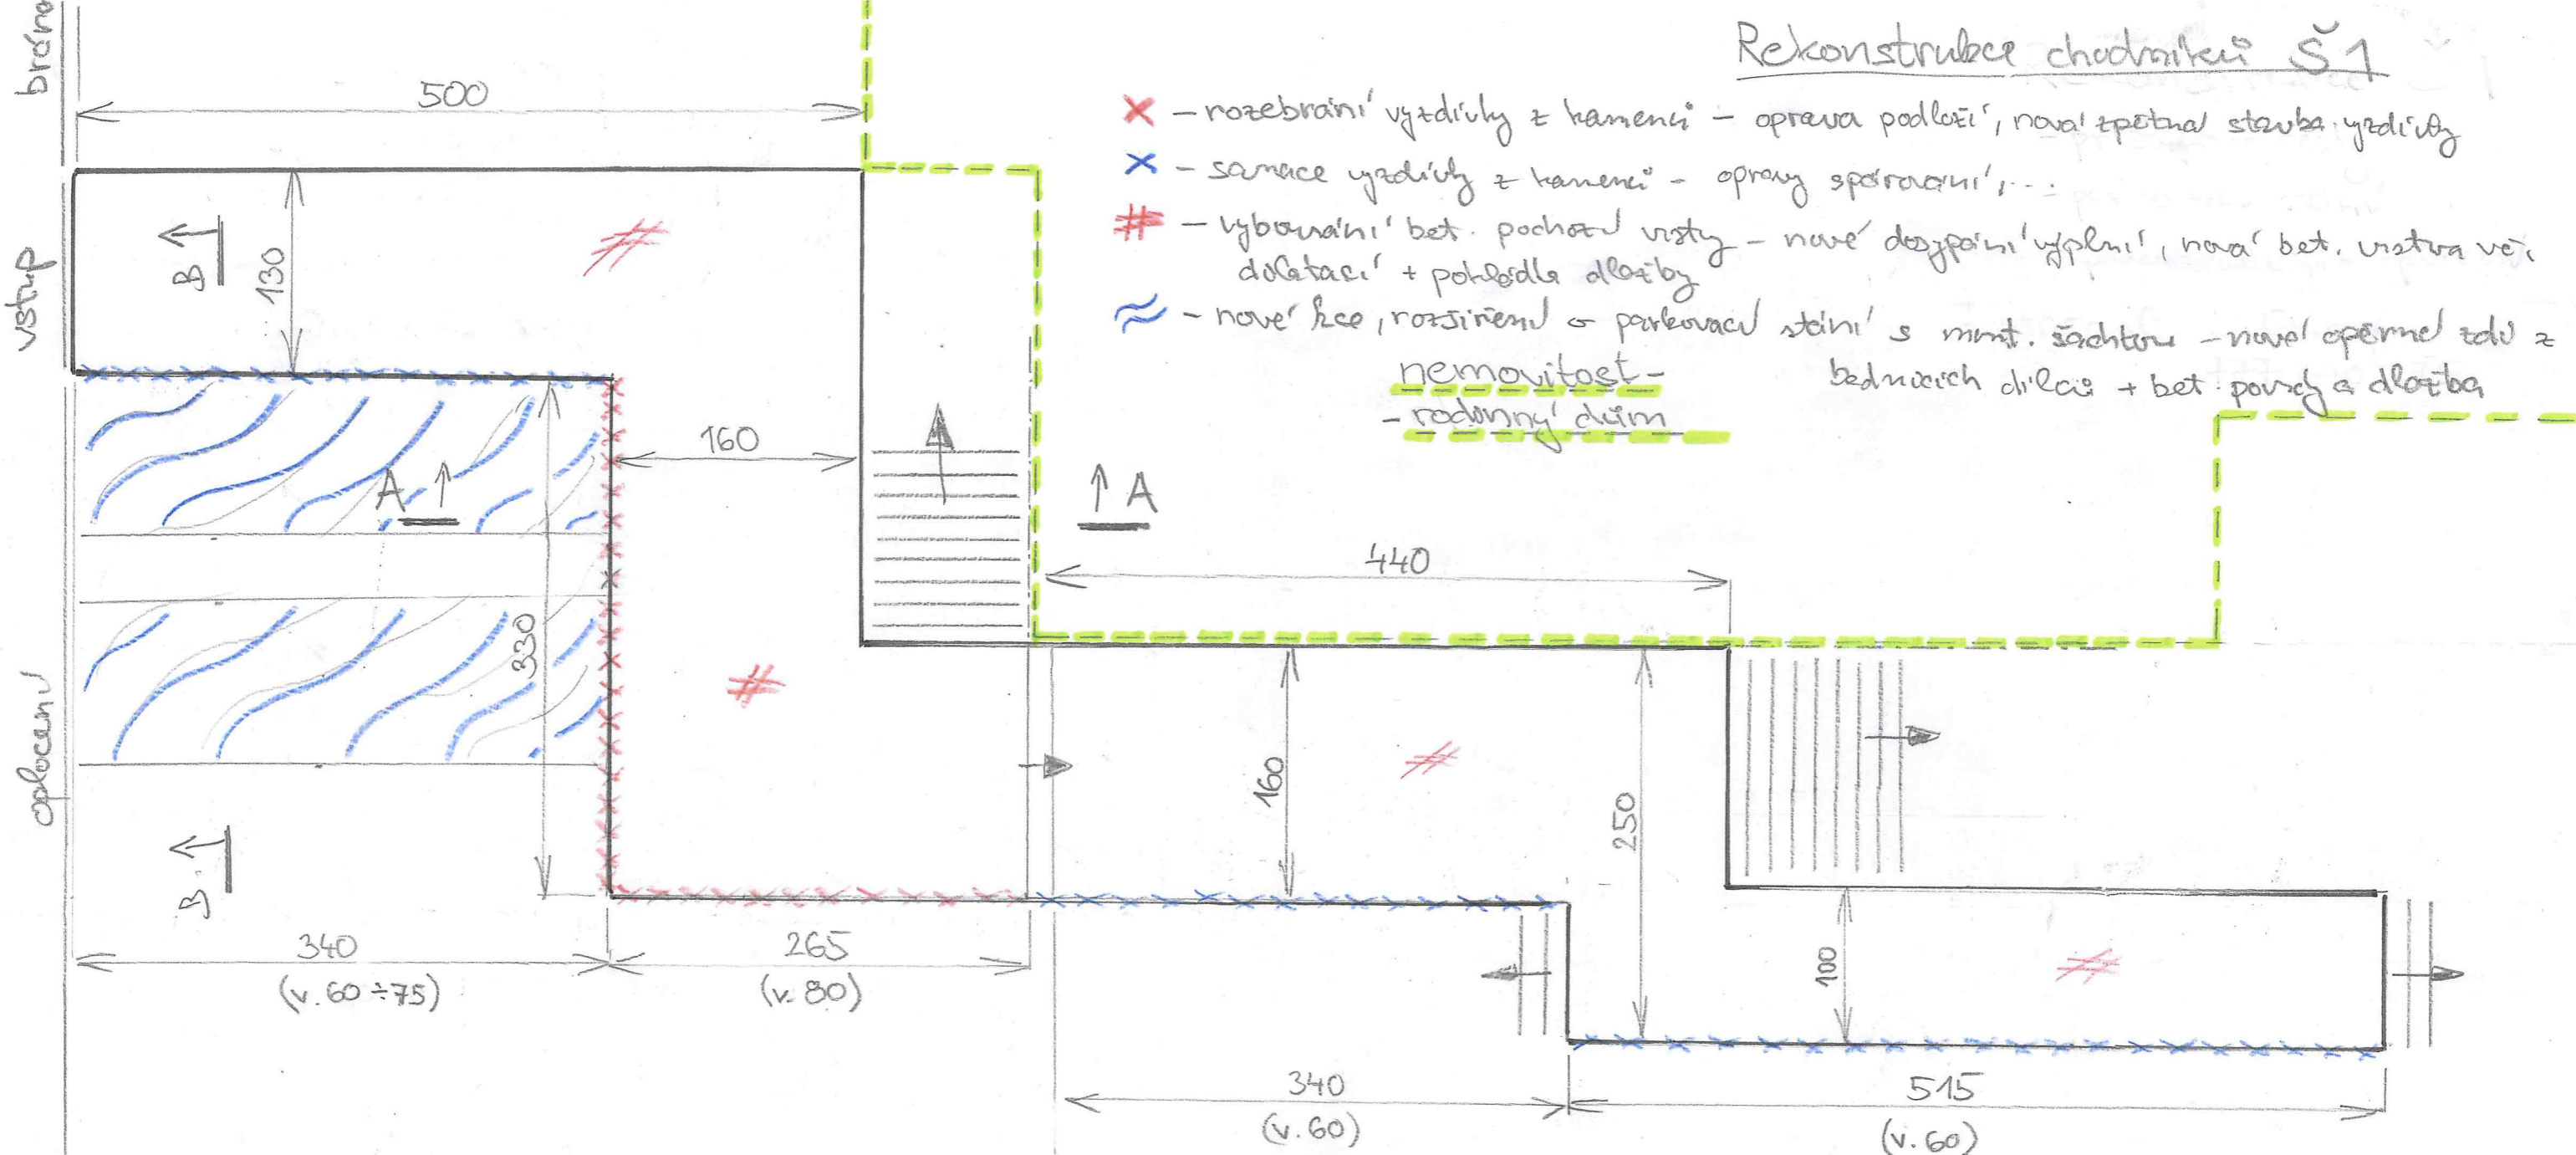 Rekonstrukce chodníků Š1
× – rozebrání vyzdívky z kamenů – oprava podloží, nová zpětná stavba vyzdívky
× – sanace vyzdívky z kamenů – opravy spárování,...
# – vybourání bet. pochozí vrstvy – nové dosypání výplní, nová bet. vrstva vč.
dilatací + pokládka dlažby
– nové kce, rozšíření o parkovací stání s mont. šachtou – nové opěrné zdi z
bednících dílců + bet. povrchy a dlažba
nemovitost –
– rodinný dům
brána
vstup
oplocení
500
130
B
160
A
A
440
330
160
250
100
B
340
(v. 60÷75)
265
(v. 80)
340
(v. 60)
515
(v. 60)